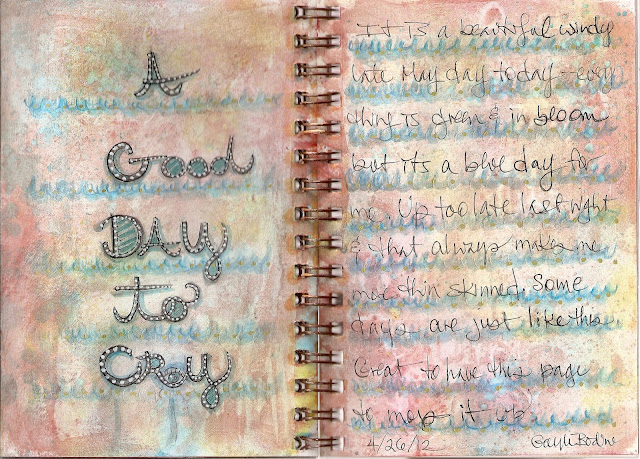 A
Good
Day
to
Cry
It is a beautiful windy
late May day today - every
thing is green & in bloom
but its a blue day for
me. Up too late last night
& that always makes me
more thin skinned. Some
days are just like this
Great to have this page
to mop it up
4/26/12 Gayle Bodine